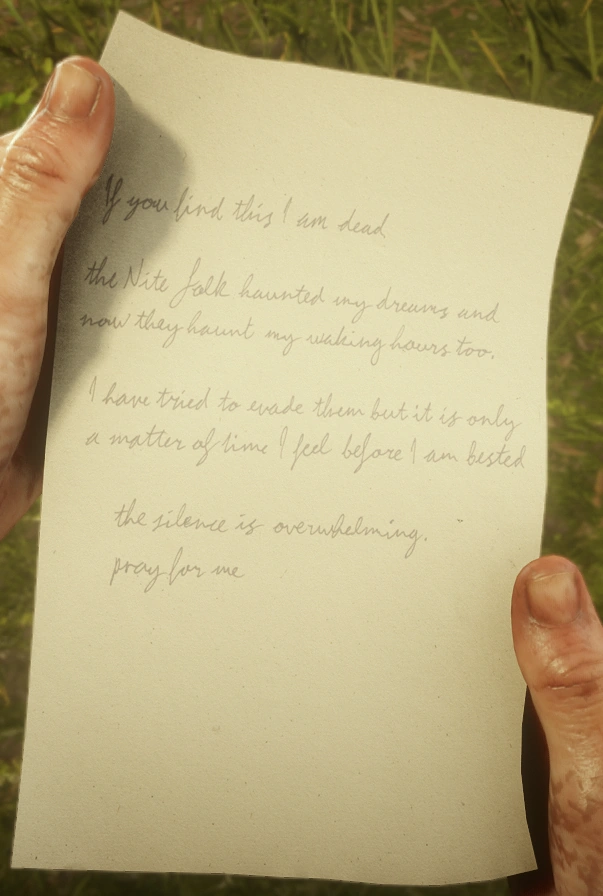 If you find this I am dead
the Nite folk haunted my dreams and
now they haunt my waking hours too.
I have tried to evade them but it is only
a matter of time I feel before I am bested
the silence is overwhelming.
pray for me